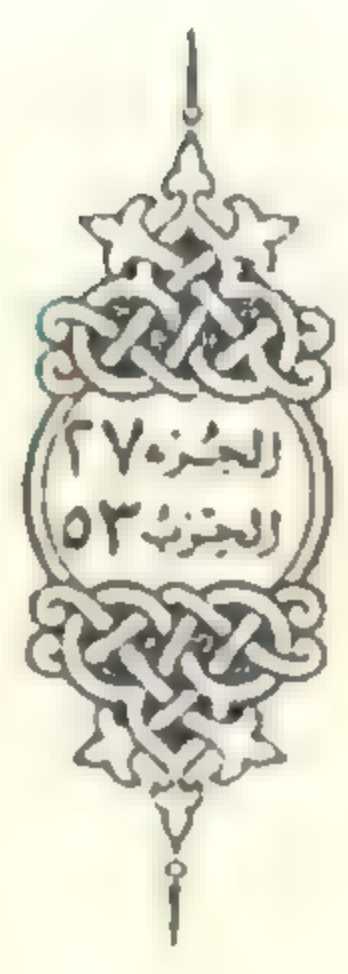 الجزء ٢٧
الحزب ٥٣